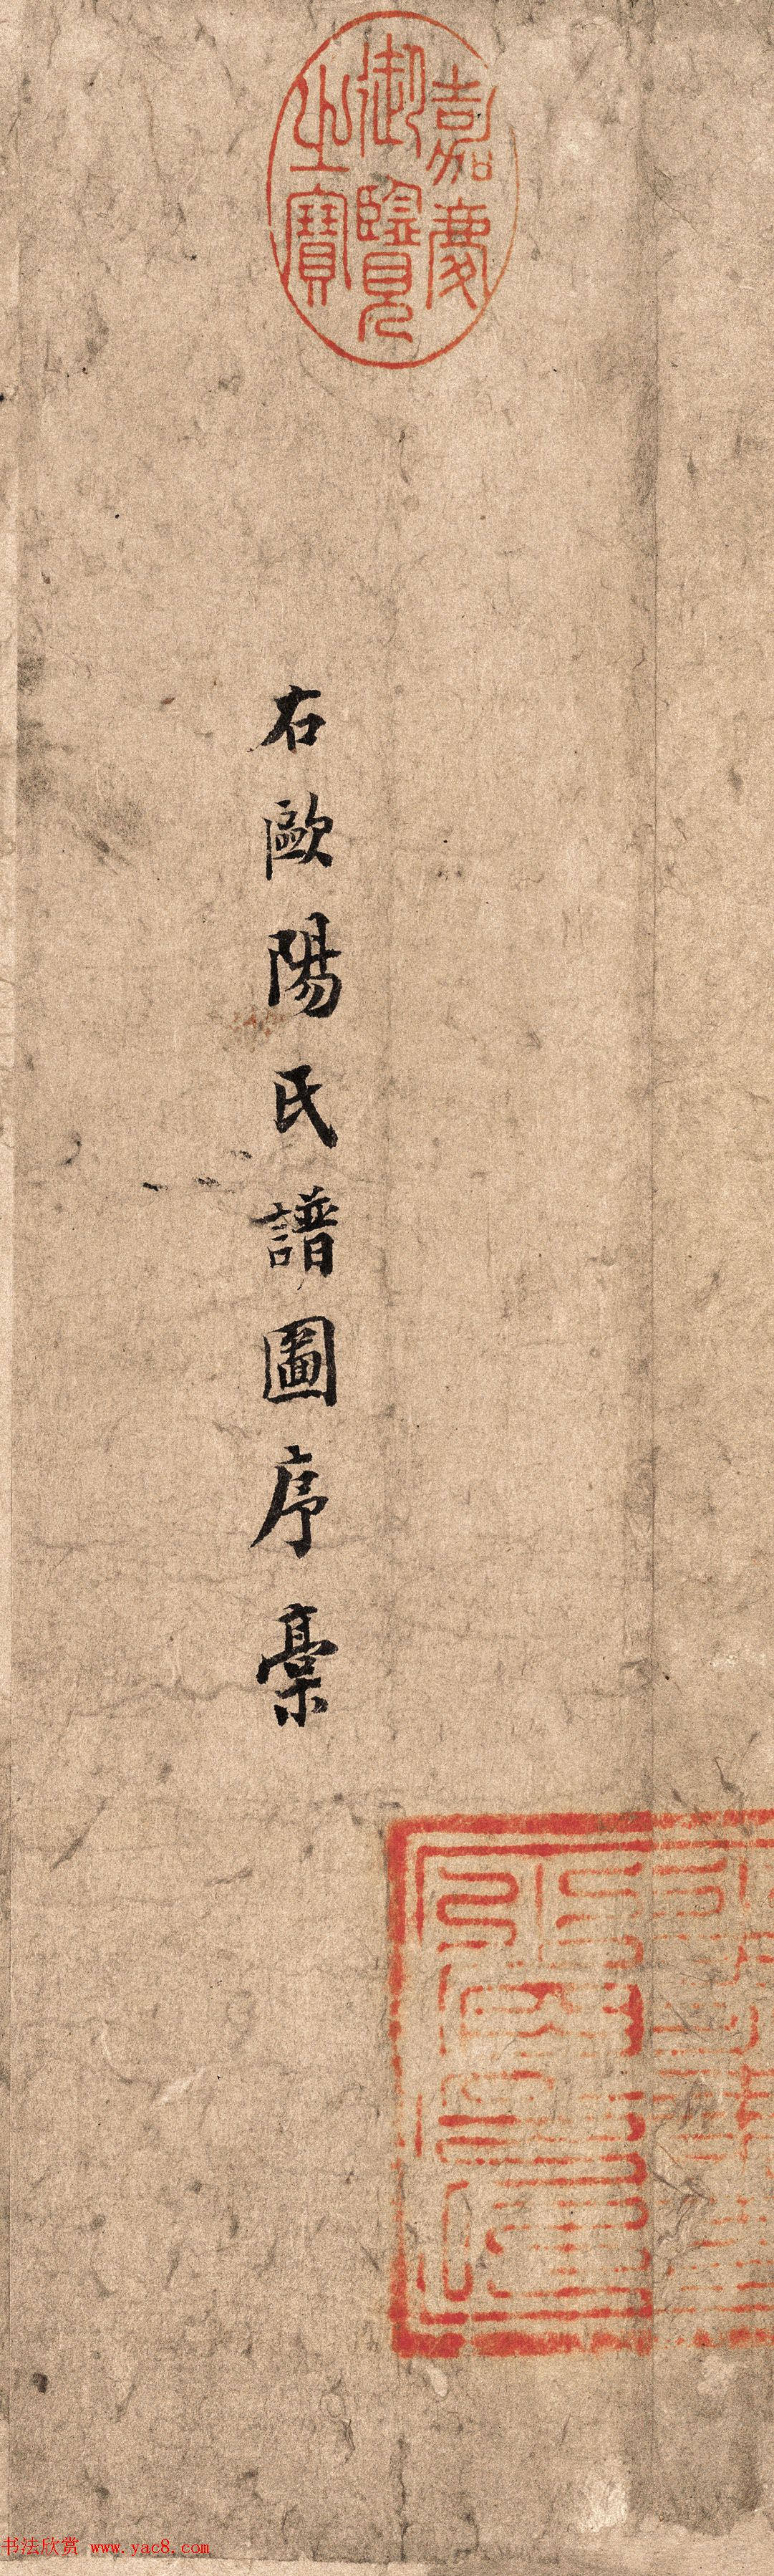 嘉慶
御覽
之寶
右歐陽氏譜圖序藁
书法欣赏 www.yac8.com